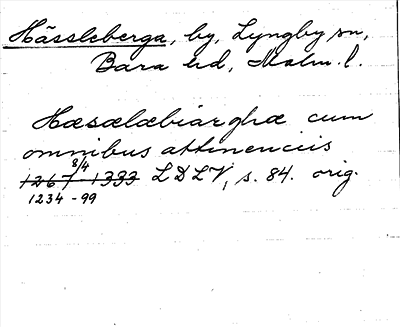 Hässleberga, by, Lyngby sn,
Bara hd, Malm. l.
Hæsælæbiarghæ cum
omnibus attinenciis
1267 8/4 - 1333 LDLV, s. 84. orig.
1234 - 99